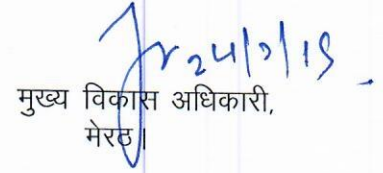 24/9/19
मुख्य विकास अधिकारी,
मेरठ।